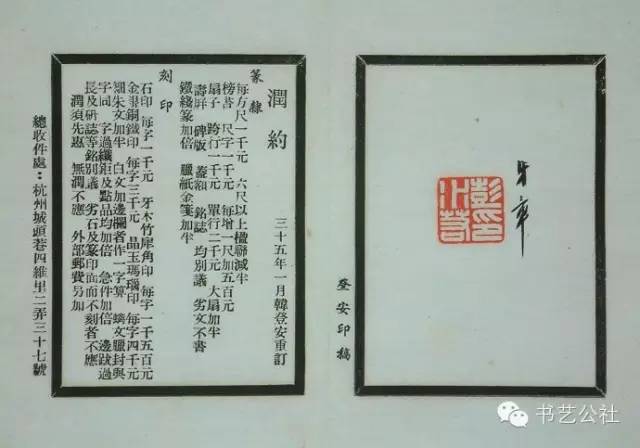 牙章
彭印
登安印稿
潤約
三十五年一月韓登安重訂
篆隸
每方尺一千元 六尺以上楹聯減半
榜書 尺字一千元 每增一尺加五百元
扇子 跨行一千元 單行二千元 大扇加半
壽屏 碑版 蓋額 銘誌 均別議 劣文不書
鐵綫篆加倍 臘紙金箋加半
刻印
石印 每字一千元 牙木竹犀角印 每字一千五百元
金銀銅鐵印 每字三千元 晶玉瑪瑙印 每字四千元
細朱文加半 白文加邊欄者作一字算 文臘封與
字同 字過纖鉅及點品均加倍 急件加倍 邊跋過
長及硏誌等銘別議 劣石及篆印面而不刻者不應
潤須先惠 無潤不應 外部郵費另加
總收件處：杭州城頭巷四維里二弄三十七號
书艺公社